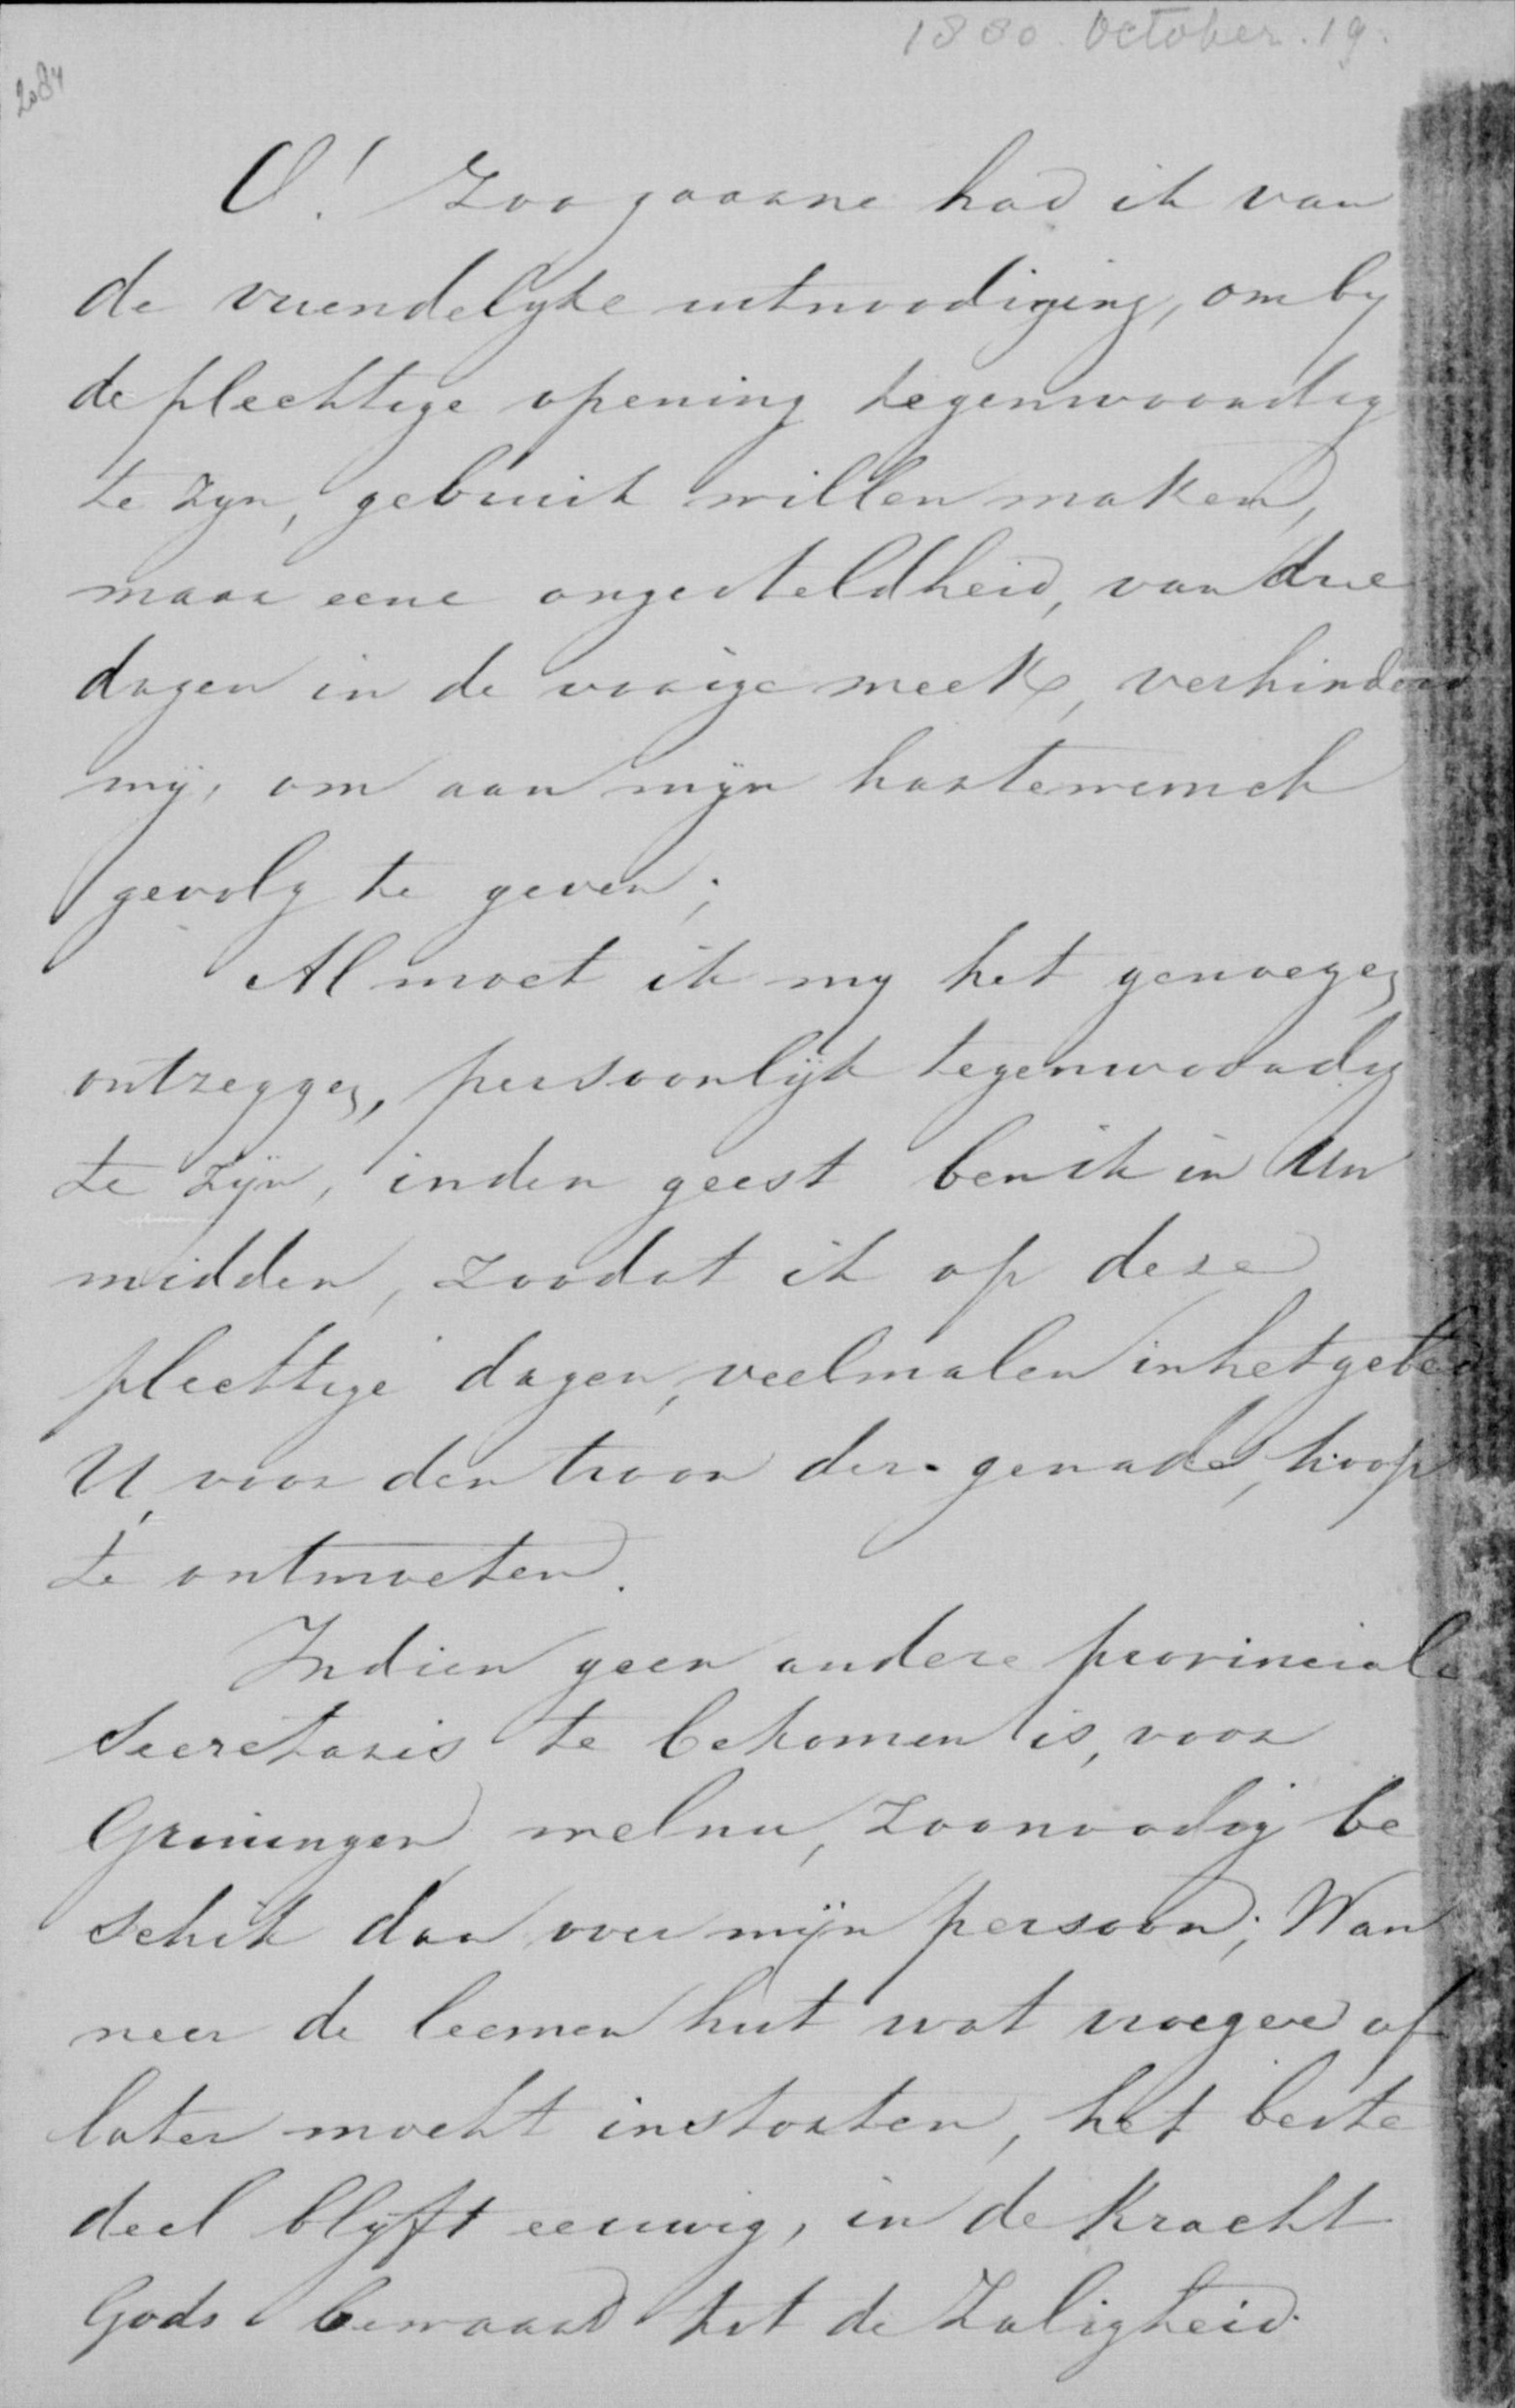 1880. October. 19.
2084
O! Zoo gaarne had ik van
de vriendelyke uitnoodiging, om by
de plechtige opening tegenwoordig
te zyn, gebruik willen maken,
maar eene ongesteldheid, van drie
dagen in de vorige week, verhinderd
mij, om aan mijn hartewensch
gevolg te geven;
Al moet ik my het genoegen
ontzeggen, persoonlijk tegenwoordig
te zijn, in den geest ben ik in Uw
midden, zoodat ik op deze
plechtige dagen, veelmalen in het gebed
U, voor den troon der genade, hoop
te ontmoeten.
Indien geen andere provinciale
Secretaris te bekomen is, voor
Groningen welnu, zoo noodig be
schik dan over mijn persoon; Wan
neer de leemen hut wat vroeger of
later mocht instorten, het beste
deel blyft eeuwig, in de Kracht
Gods bewaard tot de Zaligheid.